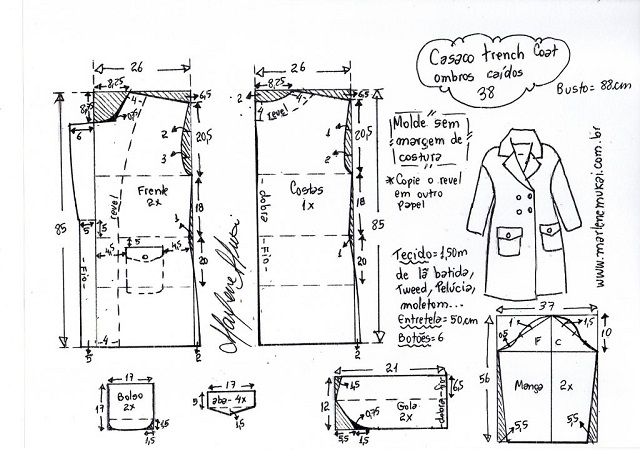 Casaco trench coat
ombros caídos
38
Busto= 88cm
Molde sem
margem de
costura
* Copie o revel
em outro
papel
Tecido=1,50m
de lã batida,
Tweed, Pelúcia,
moletom...
Entretela= 50cm
Botões= 6
www.marlenemukai.com.br
Marlene Mukai
26
8,25
6,5
4
6
2
3
20,5
Frente
2x
revel
85
18
5
5
5
4,5
4,5
1
20
-Fio-
5
4
2
26
8,25
6,5
2
4
4
revel
1
2
20,5
Costas
1x
-dobra-
18
85
1
20
-Fio-
2
17
Bolso
2x
17
1,5
1,5
17
5
aba-4x
1,5
21
1,5
12
Gola
2x
0,75
dobra-
6,5
5,5
1,5
37
1
1,5
0,5
F
C
10
56
Manga
2x
5,5
5,5